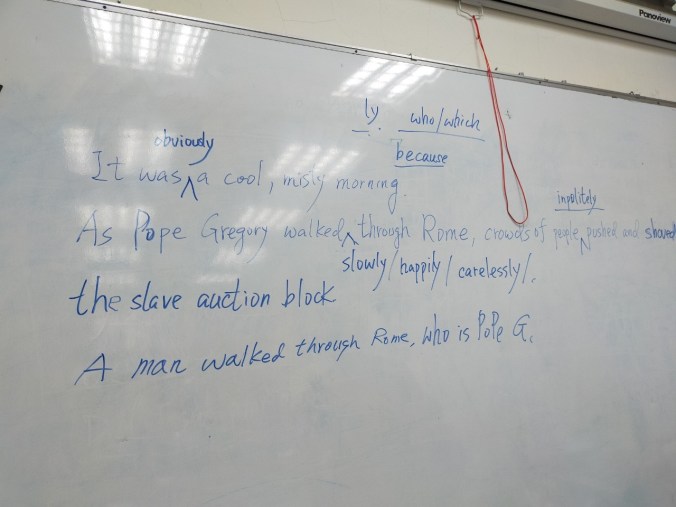 Panoview
ly. who/which
because
obviously
It was ^ a cool, misty morning.
inpolitely
As Pope Gregory walked ^ through Rome, crowds of people ^ pushed and shoved
slowly/happily/carelessly/.
the slave auction block
A man walked through Rome, who is PoPe G.